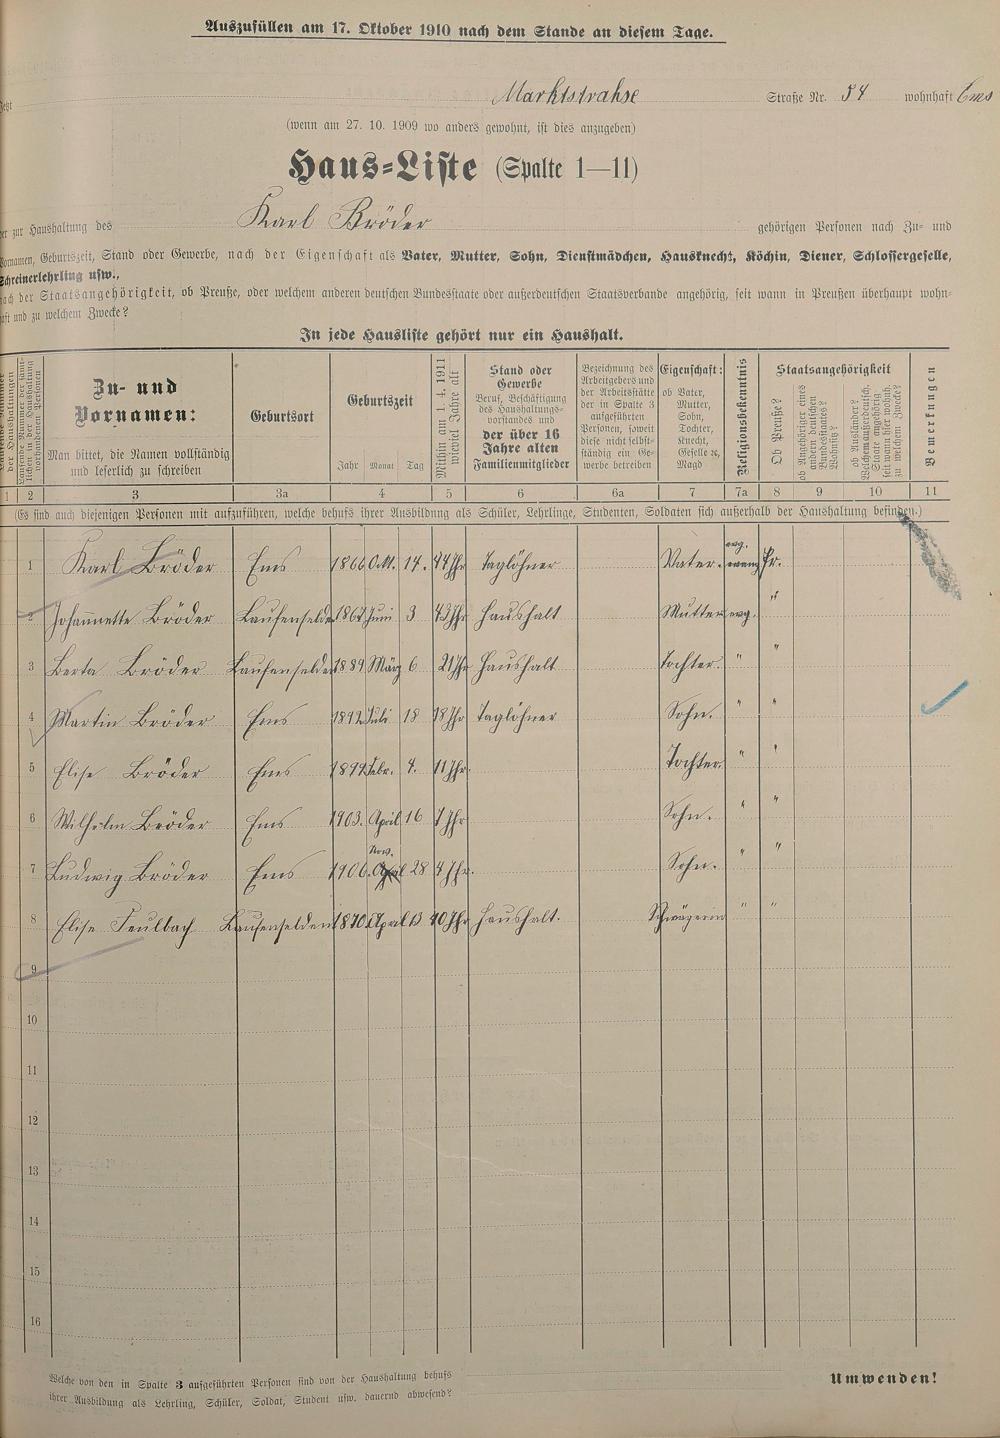 Auszufüllen am 17. Oktober 1910 nach dem Stande an diesem Tage.
Marktstrahse Straße Nr. 54 wohnhaft Ems
(wenn am 27. 10. 1909 wo anders gewohnt, ist dies anzugeben)
Haus=Liste (Spalte 1—11)
er zur Haushaltung des Karl Bröder gehörigen Personen nach Zu= und
Vornamen, Geburtszeit, Stand oder Gewerbe, nach der Eigenschaft als Vater, Mutter, Sohn, Dienstmädchen, Hausknecht, Köchin, Diener, Schlossergeselle,
Schreinerlehrling usw.,
nach der Staatsangehörigkeit, ob Preuße, oder welchem anderen deutschen Bundesstaate oder außerdeutschen Staatsverbande angehörig, seit wann in Preußen überhaupt wohn=
haft und zu welchem Zwecke?
In jede Hausliste gehört nur ein Haushalt.
der Haushaltungen
Laufende Nummer der sämtlichen in der Haushaltung vorhandenen Personen
Zu= und Vornamen:
Man bittet, die Namen vollständig und leserlich zu schreiben
Geburtsort
Geburtszeit
Jahr Monat Tag
Mithin am 1. 4. 1911 wieviel Jahre alt
Stand oder Gewerbe
Beruf, Beschäftigung des Haushaltungs=vorstandes und der über 16 Jahre alten Familienmitglieder
Bezeichnung des Arbeitgebers und der Arbeitsstätte der in Spalte 3 aufgeführten Personen, soweit diese nicht selbst=ständig ein Ge=werbe betreiben
Eigenschaft:
ob Vater, Mutter, Sohn, Tochter, Knecht, Geselle &c, Magd
Religionsbekenntnis
Staatsangehörigkeit
Ob Preuße?
ob Angehöriger eines andern deutschen Bundesstaates? Wohnsitz?
ob Ausländer? Welchem außerdeutsch. Staate angehörig seit wann hier wohnh. zu welchem Zwecke?
Bemerkungen
1 2 3 3a 4 5 6 6a 7 7a 8 9 10 11
(Es sind auch diejenigen Personen mit aufzuführen, welche behufs ihrer Ausbildung als Schüler, Lehrlinge, Studenten, Soldaten sich außerhalb der Haushaltung befinden.)
1 Karl Bröder Ems 1866 Okt. 14. 44 Jhr Taglöhner Vater. evg. Pr.
2 Johannette Bröder Laufenselden 1867 Juni 3 43 Jhr Haushalt Mutter evg. "
3 Berta Bröder Laufenselden 1889 März 6 21 Jhr Haushalt Tochter. " "
4 Martin Bröder Ems 1892 Juli 18 18 Jhr Taglöhner Sohn. " "
5 Elise Bröder Ems 1899 Febr. 4. 11 Jhr. Tochter. " "
6 Wilhelm Bröder Ems 1903. April 16 7 Jhr Sohn. " "
7 Ludwig Bröder Ems 1906. Nov. April 28 4 Jhr. Sohn. " "
8 Elise Feulbach Laufenselden 1870 April 13 40 Jhr Haushalt. Schwägerin " "
9
10
11
12
13
14
15
16
Welche von den in Spalte 3 aufgeführten Personen sind von der Haushaltung behufs
ihrer Ausbildung als Lehrling, Schüler, Soldat, Student usw. dauernd abwesend?
Umwenden!